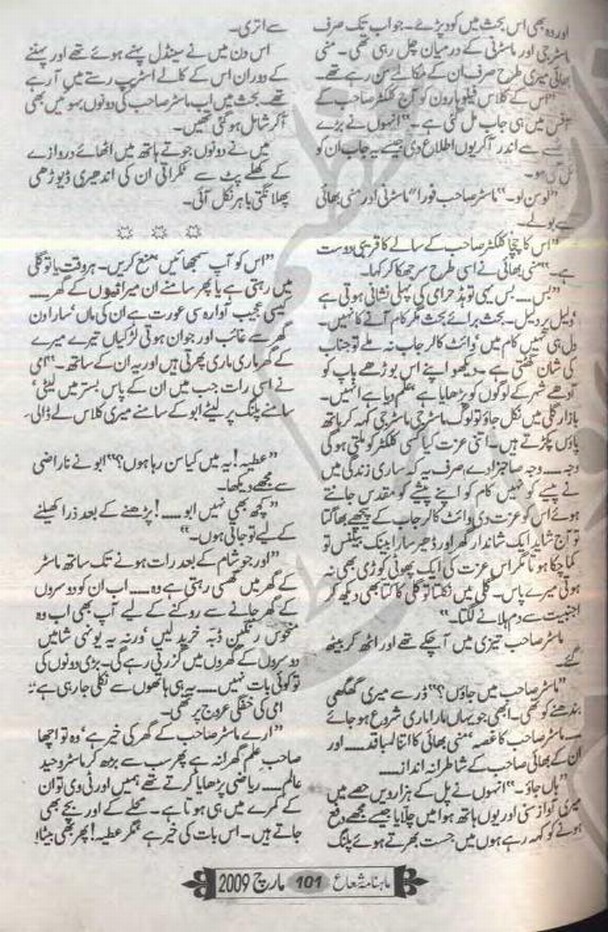 اور وہ بھی اس بحث میں کود پڑے۔ جو اب تک صرف
ماسٹر جی اور ماسٹرنی کے درمیان چل رہی تھی۔ منی
بھائی میری طرح صرف ان کے مکالمے سن رہے تھے۔
"اس کے کلاس فیلو ہارون کو آج کلکٹر صاحب کے
آفس میں ہی جاب مل گئی ہے۔" انہوں نے بڑے
سے اندر آکر یوں اطلاع دی جیسے یہ جاب ان کو
ہو۔
"لو سن لو۔" ماسٹر صاحب فورا" ماسٹرنی اور منی بھائی
سے بولے۔
"اس کا چچا کلکٹر صاحب کے سالے کا قریبی دوست
ہے۔" منی بھائی نے اسی طرح سر جھکا کر کہا۔
"بس ۔۔۔۔ بس یہی تو ہڈ حرامی کی پہلی نشانی ہوتی ہے
دلیل پر دلیل۔ بحث برائے بحث مگر کام آنے کا نہیں۔
دل ہی نہیں کام میں، وائٹ کالر جاب نہ ملے تو جناب
کی شان گھٹتی ہے۔ دیکھو اپنے اس بوڑھے باپ کو
آدھے شہر کے لوگوں کو پڑھایا ہے، علم دیا ہے انہیں۔
بازار گلی میں نکل جاؤ تو لوگ ماسٹر جی ماسٹر جی کہہ کر ہاتھ
پاؤں پکڑتے ہیں۔ اتنی عزت کیا کسی کلکٹر کو ملتی ہوگی
وجہ ۔۔۔۔ وجہ صاحبزادے، صرف یہ کہ ساری زندگی میں
نے پیسے کو نہیں کام کو اپنے پیشے کو مقدس جانتے
ہوئے اس کو عزت دی، وائٹ کالر جاب کے پیچھے بھاگتا
تو آج شاید ایک شاندار گھر اور ڈھیر سارا بینک بیلنس تو
کما چکا ہوتا مگر اس عزت کی ایک پھوٹی کوڑی بھی نہ
ہوتی میرے پاس۔ گلی میں نکلتا تو گلی کا کتا بھی دیکھ کر
اجنبیت سے دم ہلانے لگتا۔"
ماسٹر صاحب تیزی میں آچکے تھے اور اٹھ کر بیٹھ
گئے۔
"ماسٹر صاحب میں جاؤں؟" ڈر سے میری گھگھی
بندھنے کو تھی۔ ابھی جو یہاں مارا ماری شروع ہو جائے
ماسٹر صاحب کا غصہ، منی بھائی کا اتنا لمبا قد ۔۔۔۔ اور
ان کے بھائی صاحب کے شاطرانہ انداز ۔۔۔۔
"ہاں جاؤ۔" انہوں نے پل کے ہزارویں حصے میں
میری آواز سنی اور یوں ہاتھ ہوا میں چلایا جیسے مجھے دفع
ہونے کو کہہ رہے ہوں میں جست بھرتے ہوئے پلنگ
سے اتری۔
اس دن میں نے سینڈل پہنے ہوئے تھے اور پہننے
کے دوران اس کے کالے اسٹریپ رستے میں آرہے
تھے۔ بحث میں اب ماسٹر صاحب کی دونوں بہوئیں بھی
آکر شامل ہو گئی تھیں۔
میں نے دونوں جوتے ہاتھ میں اٹھائے دروازے
کے کھلے پٹ سے ٹکراتی ان کی اندھیری ڈیوڑھی
پھلانگتی باہر نکل آئی۔
☆ ☆ ☆
"اس کو آپ سمجھائیں، منع کریں۔ ہر وقت یا تو گلی
میں رہتی ہے یا پھر سامنے ان میراثیوں کے گھر ۔۔۔۔
کیسی عجیب آوارہ سی عورت ہے ان کی ماں، سارا دن
گھر سے غائب اور جوان ہوتی لڑکیاں تیرے میرے
کے گھر ماری ماری پھرتی ہیں اور یہ ان کے ساتھ۔" امی
نے اسی رات جب میں ان کے پاس بستر میں لیٹی،
سامنے پلنگ پر لیٹے ابو کے سامنے میری کلاس لے ڈالی۔
"عطیہ! یہ میں کیا سن رہا ہوں؟" ابو نے ناراضی
سے مجھے دیکھا۔
"کچھ بھی نہیں ابو ۔۔۔۔! پڑھنے کے بعد ذرا کھیلنے
کے لیے تو جاتی ہوں۔"
"اور جو شام کے بعد رات ہونے تک ساتھ ماسٹر
کے گھر میں گھسی رہتی ہے وہ ۔۔۔۔ اب ان کو دوسروں
کے گھر جانے سے روکنے کے لیے آپ بھی اب وہ
منحوس رنگین ڈبہ خرید لیں، ورنہ یہ یونہی شامیں
دوسروں کے گھروں میں گزرتی رہے گی۔ بڑی دونوں کی
تو کوئی بات نہیں ۔۔۔۔ یہ ہی ہاتھوں سے نکلی جا رہی ہے۔"
امی کی خفگی عروج پر تھی۔
"ارے ماسٹر صاحب کے گھر کی خیر ہے، وہ تو اچھا
صاحب علم گھرانہ ہے پھر سب سے بڑھ کر ماسٹر وحید
عالم ۔۔۔۔ ریاضی پڑھایا کرتے تھے ہمیں اور ٹی وی تو ان
کے کمرے میں ہی ہوتا ہے۔ محلے کے اور بچے بھی
جاتے ہیں۔ اس بات کی خیر ہے، مگر عطیہ! پھر بھی بیٹا!
ماہنامہ شعاع 101 مارچ 2009